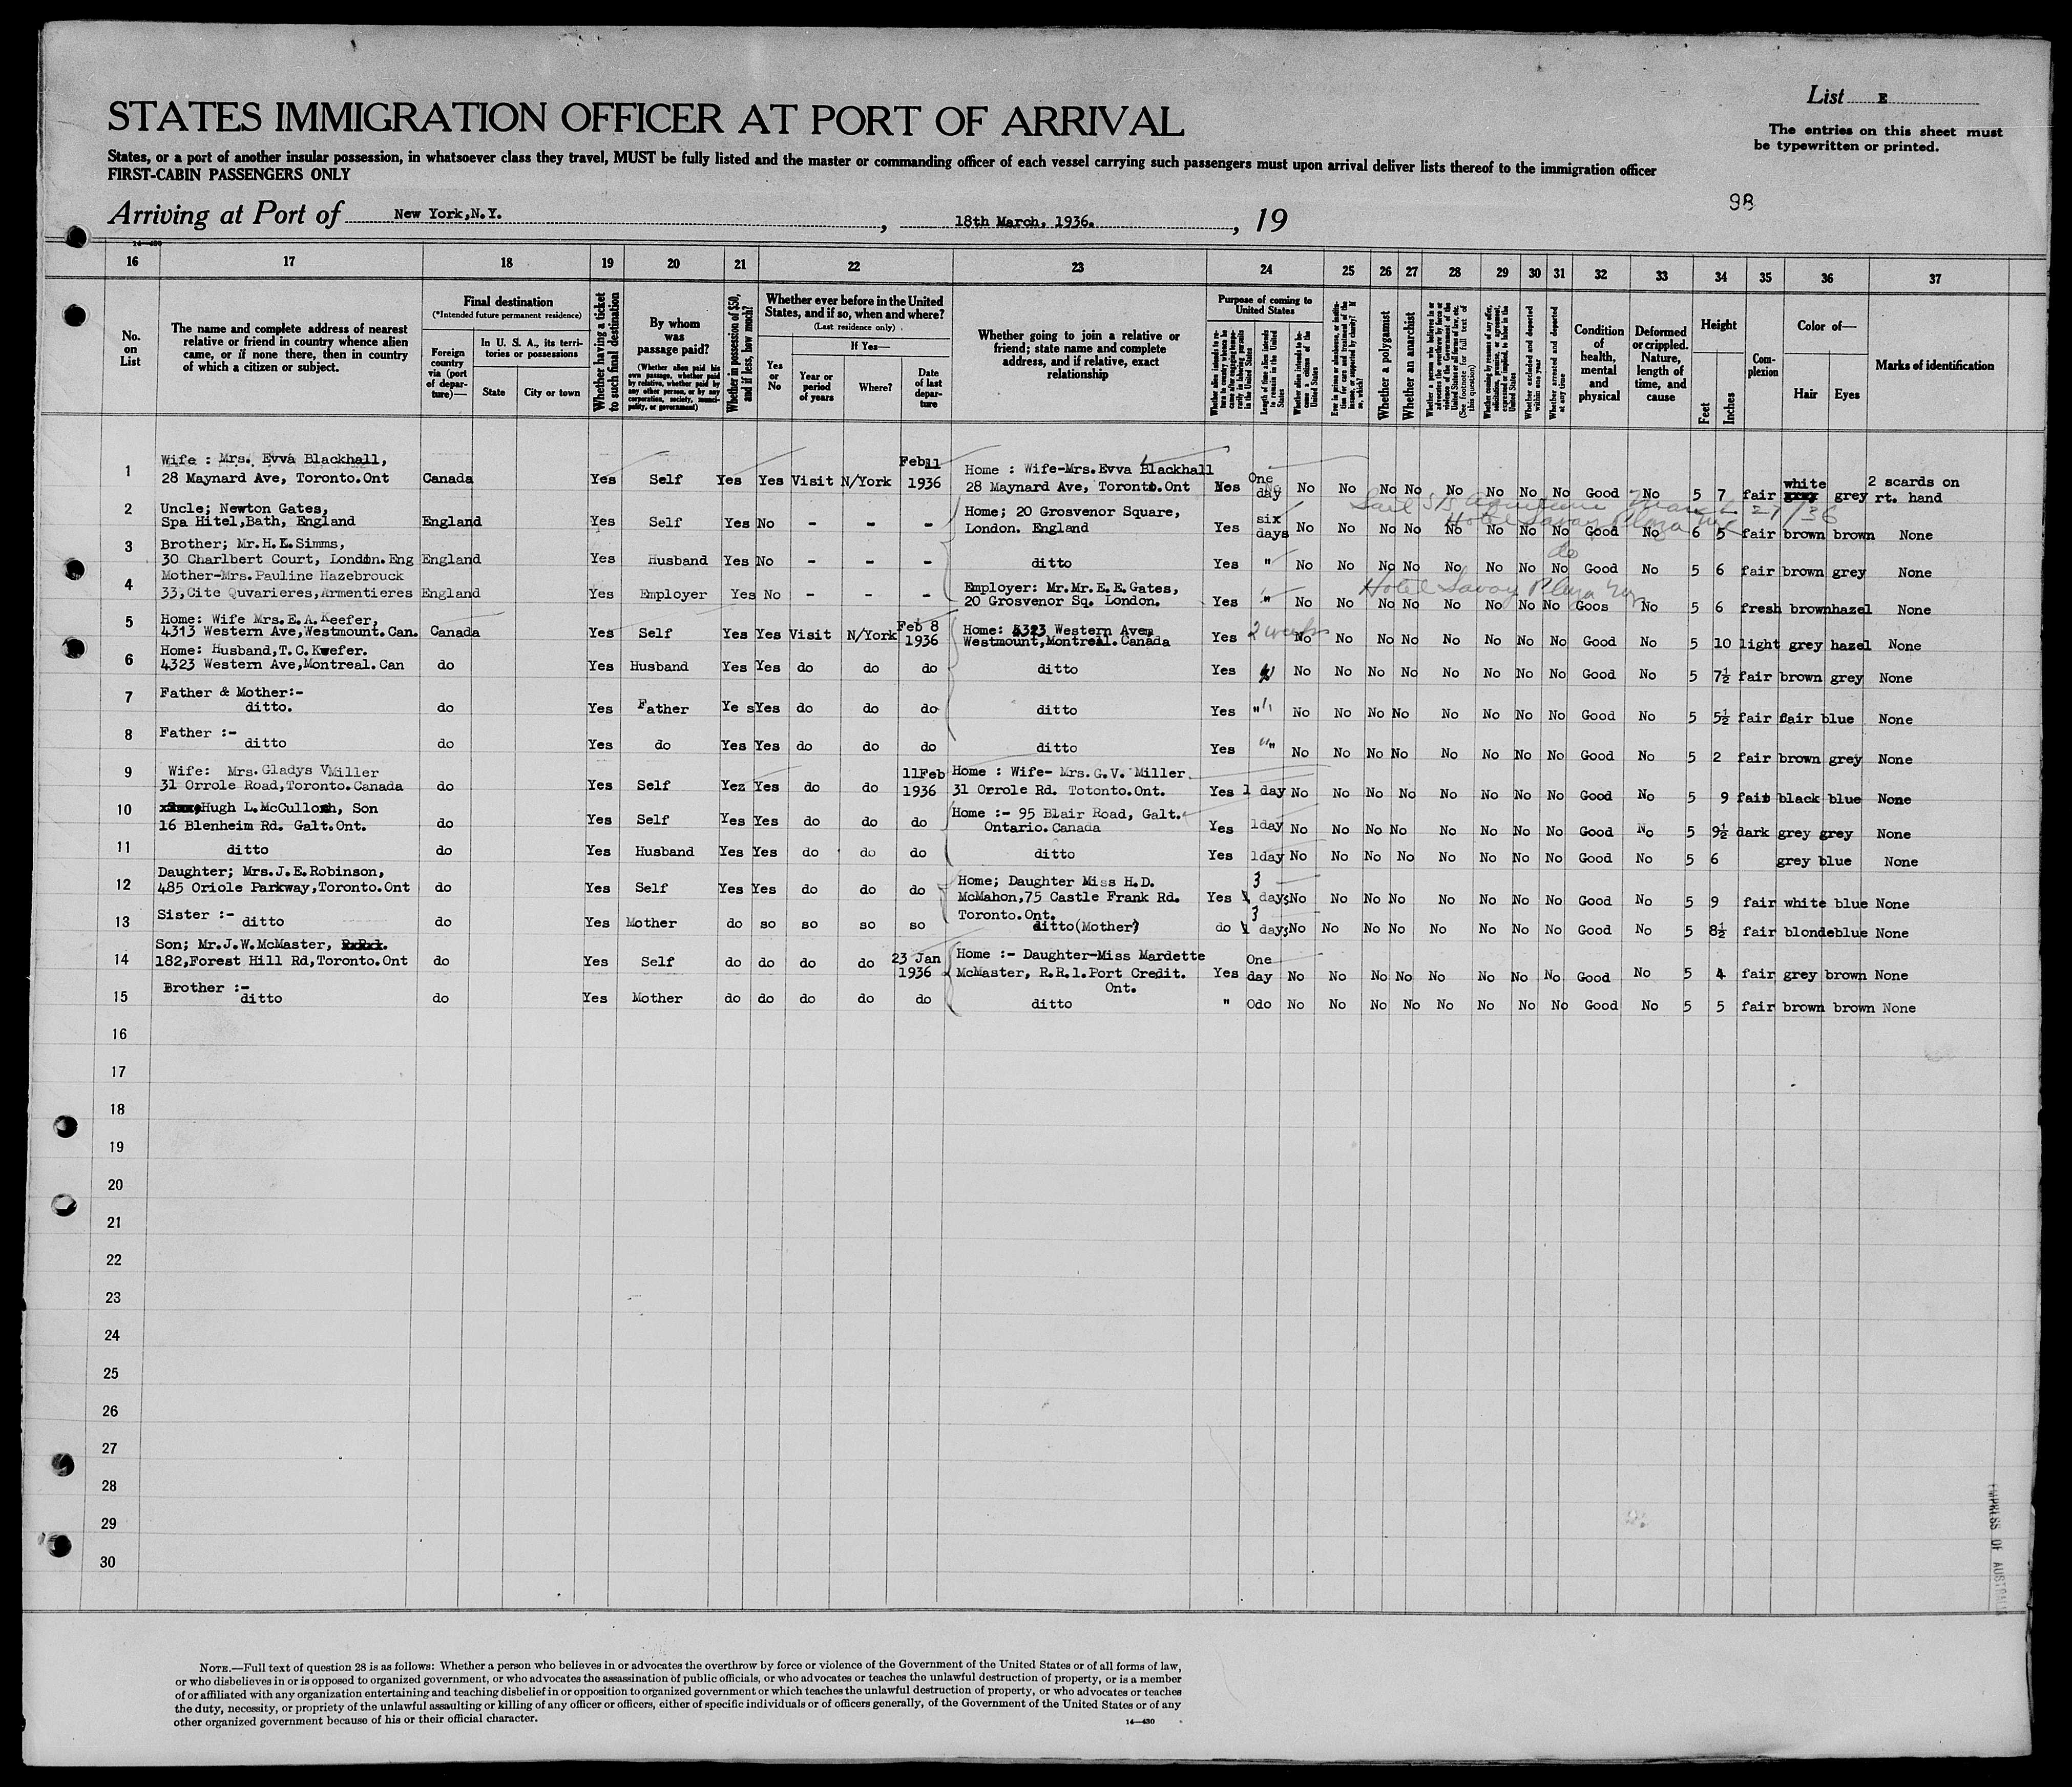 List E
STATES IMMIGRATION OFFICER AT PORT OF ARRIVAL
The entries on this sheet must
be typewritten or printed.
States, or a port of another insular possession, in whatsoever class they travel, MUST be fully listed and the master or commanding officer of each vessel carrying such passengers must upon arrival deliver lists thereof to the immigration officer
FIRST-CABIN PASSENGERS ONLY
98
Arriving at Port of New York,N.Y. , 18th March, 1936. , 19
14—430
16 17 18 19 20 21 22 23 24 25 26 27 28 29 30 31 32 33 34 35 36 37
No.
on
List
The name and complete address of nearest
relative or friend in country whence alien
came, or if none there, then in country
of which a citizen or subject.
Final destination
(*Intended future permanent residence)
Foreign
country
via (port
of depar-
ture)—
In U. S. A., its terri-
tories or possessions
State City or town
Whether having a ticket
to such final destination
By whom
was
passage paid?
(Whether alien paid his
own passage, whether paid
by relative, whether paid by
any other person, or by any
corporation, society, munici-
pality, or government)
Whether in possession of $50,
and if less, how much?
Whether ever before in the United
States, and if so, when and where?
(Last residence only)
If Yes—
Yes
or
No
Year or
period
of years
Where?
Date
of last
depar-
ture
Whether going to join a relative or
friend; state name and complete
address, and if relative, exact
relationship
Purpose of coming to
United States
Length of time alien intends
to remain in the United
States
Whether alien intends to be-
come a citizen of the
United States
Whether a polygamist
Whether an anarchist
Whether excluded and deported
within one year
Whether arrested and deported
at any time
Condition
of
health,
mental
and
physical
Deformed
or crippled.
Nature,
length of
time, and
cause
Height
Feet Inches
Com-
plexion
Color of—
Hair Eyes
Marks of identification
1 Wife : Mrs. Evva Blackhall,
28 Maynard Ave, Toronto.Ont Canada Yes Self Yes Yes Visit N/York Feb11 1936 Home : Wife-Mrs.Evva Blackhall
28 Maynard Ave, Toronto.Ont One day No No No No No No No No Good No 5 7 fair white grey 2 scards on
rt. hand
2 Uncle; Newton Gates,
Spa Hitel,Bath, England England Yes Self Yes No - - - Home; 20 Grosvenor Square,
London. England Yes six days No No No No No No No No Good No 6 5 fair brown brown None
Hotel Savoy Plaza
3 Brother; Mr.H.L.Simms,
30 Charlbert Court, London.Eng England Yes Husband Yes No - - - ditto Yes " No No No No No No No No Good No 5 6 fair brown grey None
do
4 Mother-Mrs.Pauline Hazebrouck
33,Cite Quvarieres,Armentieres England Yes Employer Yes No - - - Employer: Mr.Mr.E.E.Gates,
20 Grosvenor Sq. London. Yes " No No No No No No No No Goos No 5 6 fresh brown hazel None
Hotel Savoy Plaza
5 Home: Wife Mrs.E.A.Keefer,
4313 Western Ave,Westmount.Can. Canada Yes Self Yes Yes Visit N/York Feb 8 1936 Home: 4323 Western Ave,
Westmount,Montreal.Canada Yes 2 weeks No No No No No No No No Good No 5 10 light grey hazel None
6 Home: Husband,T.C.Kwefer.
4323 Western Ave,Montreal.Can do Yes Husband Yes Yes do do do ditto Yes No No No No No No No No Good No 5 7½ fair brown grey None
7 Father & Mother:-
ditto. do Yes Father Ye s Yes do do do ditto Yes " No No No No No No No No Good No 5 5½ fair fair blue None
8 Father :-
ditto do Yes do Yes Yes do do do ditto Yes " No No No No No No No No Good No 5 2 fair brown grey None
9 Wife: Mrs.Gladys VMiller
31 Orrole Road,Toronto.Canada do Yes Self Yez Yes do do 11Feb 1936 Home : Wife- Mrs.G.V. Miller.
31 Orrole Rd. Totonto.Ont. Yes 1 day No No No No No No No No Good No 5 9 fair black blue None
10 Hugh L.McCulloch, Son
16 Blenheim Rd. Galt.Ont. do Yes Self Yes Yes do do do Home :- 95 Blair Road, Galt.
Ontario.Canada Yes 1day No No No No No No No No Good No 5 9½ dark grey grey None
11 ditto do Yes Husband Yes Yes do do do ditto Yes 1day No No No No No No No No Good No 5 6 grey blue None
12 Daughter; Mrs.J.E.Robinson,
485 Oriole Parkway,Toronto.Ont do Yes Self Yes Yes do do do Home; Daughter Miss H.D.
McMahon,75 Castle Frank Rd.
Toronto.Ont. Yes 3 days No No No No No No No No Good No 5 9 fair white blue None
13 Sister :-
ditto do Yes Mother do so so so so ditto(Mother) do 3 days No No No No No No No No Good No 5 8½ fair blonde blue None
14 Son; Mr.J.W.McMaster,
182,Forest Hill Rd,Toronto.Ont do Yes Self do do do do 23 Jan 1936 Home :- Daughter-Miss Mardette
McMaster, R.R.1.Port Credit.
Ont. Yes One day No No No No No No No No Good No 5 4 fair grey brown None
15 Brother :-
ditto do Yes Mother do do do do do ditto " Odo No No No No No No No No Good No 5 5 fair brown brown None
16
17
18
19
20
21
22
23
24
25
26
27
28
29
30
EMPRESS OF AUSTRALIA
NOTE.—Full text of question 28 is as follows: Whether a person who believes in or advocates the overthrow by force or violence of the Government of the United States or of all forms of law,
or who disbelieves in or is opposed to organized government, or who advocates the assassination of public officials, or who advocates or teaches the unlawful destruction of property, or is a member
of or affiliated with any organization entertaining and teaching disbelief in or opposition to organized government or which teaches the unlawful destruction of property, or who advocates or teaches
the duty, necessity, or propriety of the unlawful assaulting or killing of any officer or officers, either of specific individuals or of officers generally, of the Government of the United States or of any
other organized government because of his or their official character.
14—430